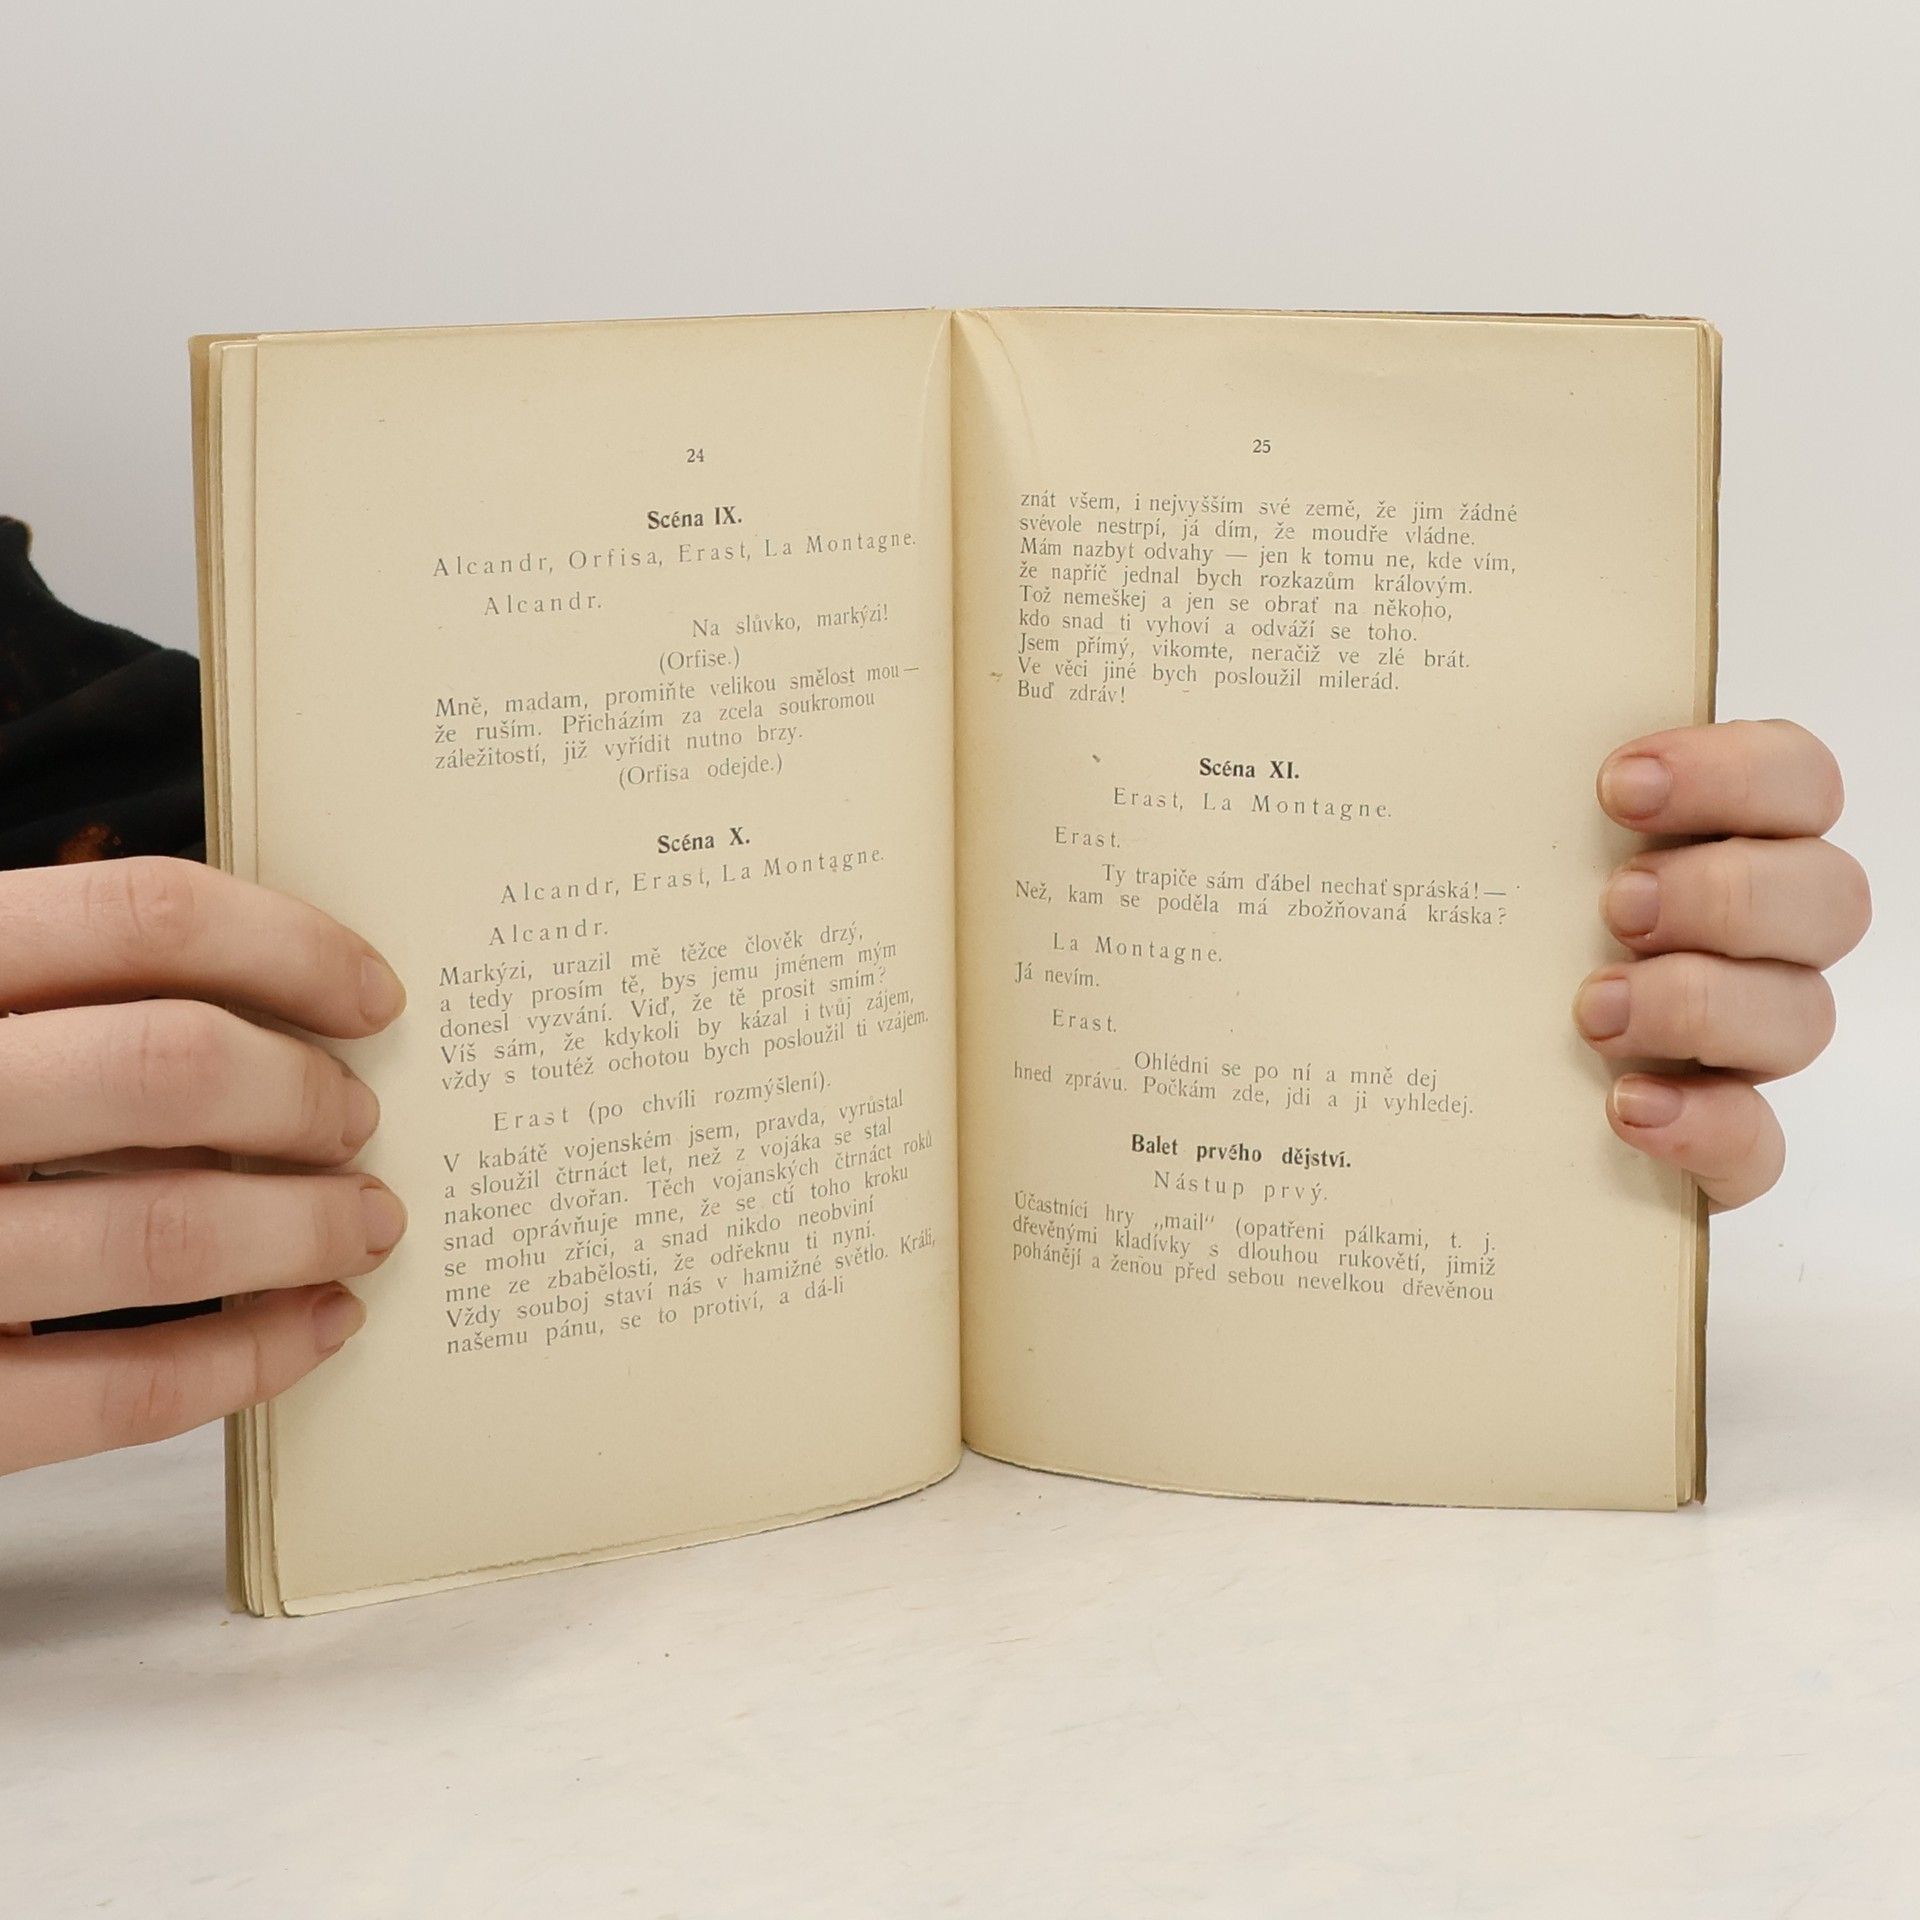 24
Scéna IX.
Alcandr, Orfisa, Erast, La Montagne.
Alcandr.
Na slůvko, markýzi!
(Orfise.)
Mně, madam, promiňte velikou smělost mou —
že ruším. Přicházím za zcela soukromou
záležitostí, již vyřídit nutno brzy.
(Orfisa odejde.)
Scéna X.
Alcandr, Erast, La Montagne.
Alcandr.
Markýzi, urazil mě těžce člověk drzý,
a tedy prosím tě, bys jemu jménem mým
donesl vyzvání. Viď, že tě prosit smím?
Víš sám, že kdykoli by kázal i tvůj zájem,
vždy s toutéž ochotou bych posloužil ti vzájem.
Erast (po chvíli rozmýšlení).
V kabátě vojenském jsem, pravda, vyrůstal
a sloužil čtrnáct let, než z vojáka se stal
nakonec dvořan. Těch vojanských čtrnáct roků
snad oprávňuje mne, že se ctí toho kroku
se mohu zříci, a snad nikdo neobviní
mne ze zbabělosti, že odřeknu ti nyní.
Vždy souboj staví nás v hamižné světlo. Králi,
našemu pánu, se to protiví, a dá-li
25
znát všem, i nejvyšším své země, že jim žádné
svévole nestrpí, já dím, že moudře vládne.
Mám nazbyt odvahy — jen k tomu ne, kde vím,
že napříč jednal bych rozkazům královým.
Tož nemeškej a jen se obrať na někoho,
kdo snad ti vyhoví a odváží se toho.
Jsem přímý, vikomte, neračiž ve zlé brát.
Ve věci jiné bych posloužil milerád.
Buď zdráv!
Scéna XI.
Erast, La Montagne.
Erast.
Ty trapiče sám ďábel nechať spráská! —
Než, kam se poděla má zbožňovaná kráska?
La Montagne.
Já nevím.
Erast.
Ohlédni se po ní a mně dej
hned zprávu. Počkám zde, jdi a ji vyhledej.
Balet prvého dějství.
Nástup prvý.
Účastníci hry „mail“ (opatřeni pálkami, t. j.
dřevěnými kladívky s dlouhou rukovětí, jimiž
pohánějí a ženou před sebou nevelkou dřevěnou